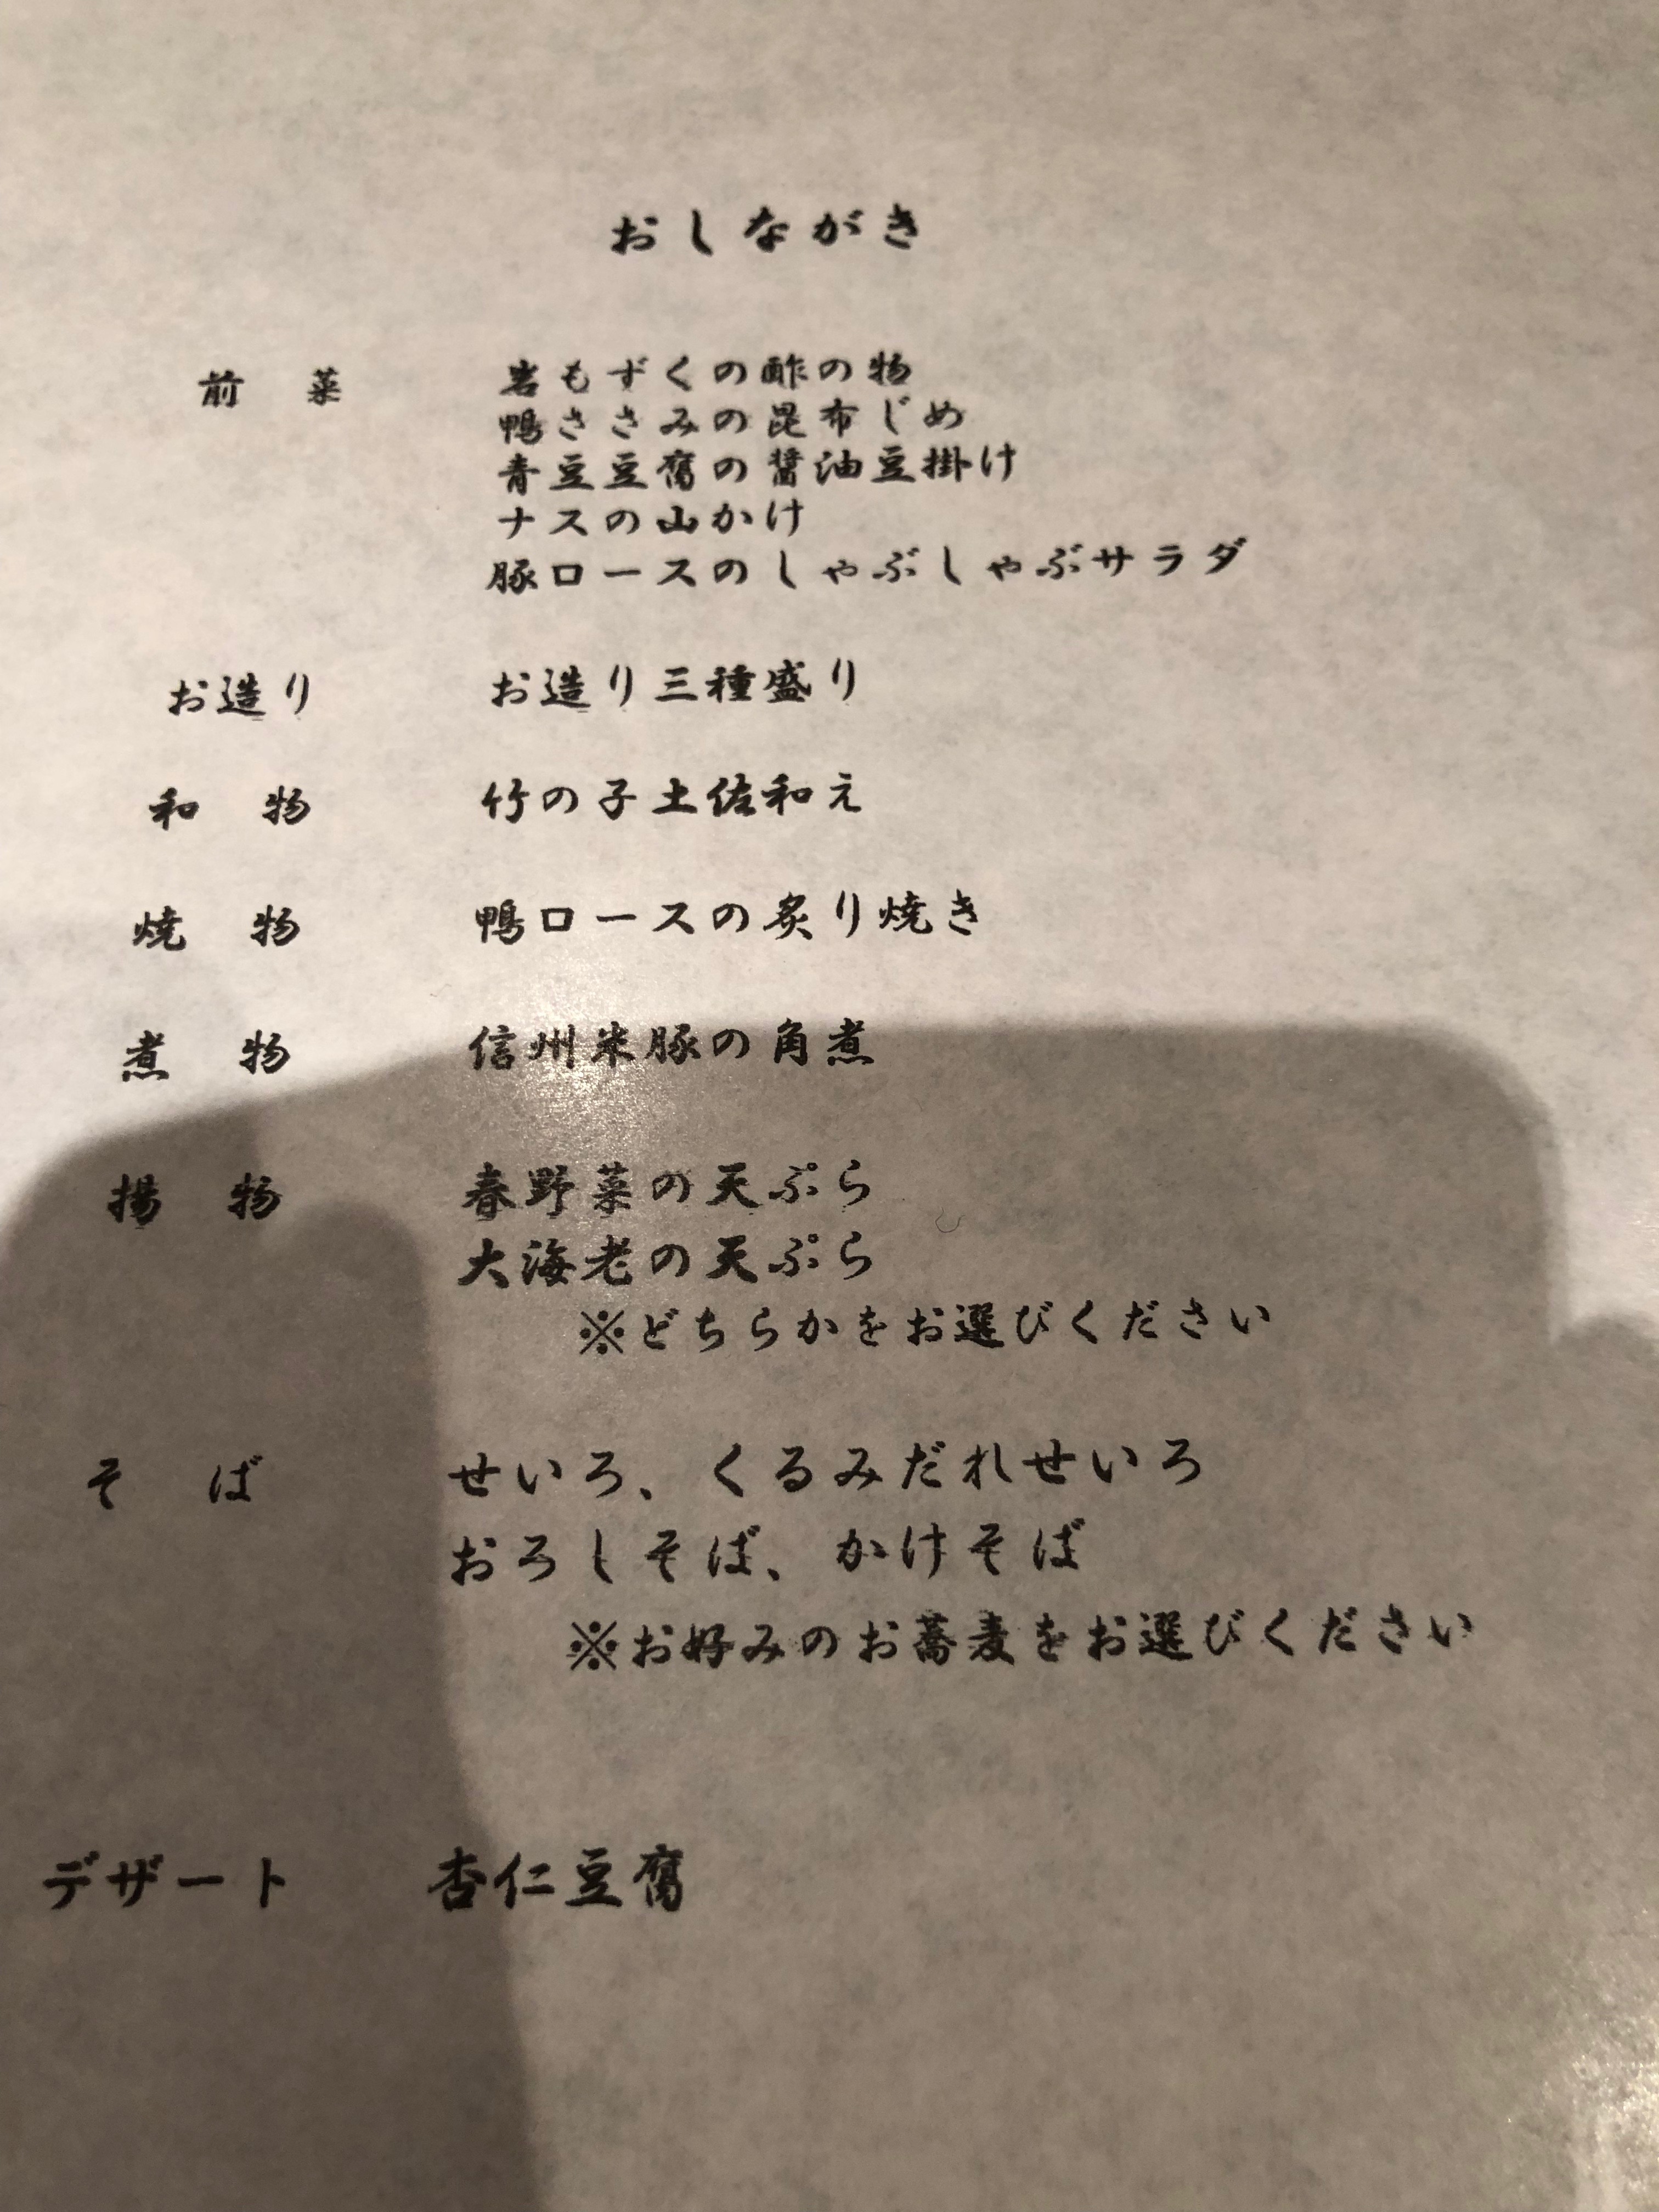 おしながき
前菜 岩もずくの酢の物
鴨ささみの昆布じめ
青豆豆腐の醤油豆掛け
ナスの山かけ
豚ロースのしゃぶしゃぶサラダ
お造り お造り三種盛り
和物 竹の子土佐和え
焼物 鴨ロースの炙り焼き
煮物 信州米豚の角煮
揚物 春野菜の天ぷら
大海老の天ぷら
※どちらかをお選びください
そば せいろ、くるみだれせいろ
おろしそば、かけそば
※お好みのお蕎麦をお選びください
デザート 杏仁豆腐